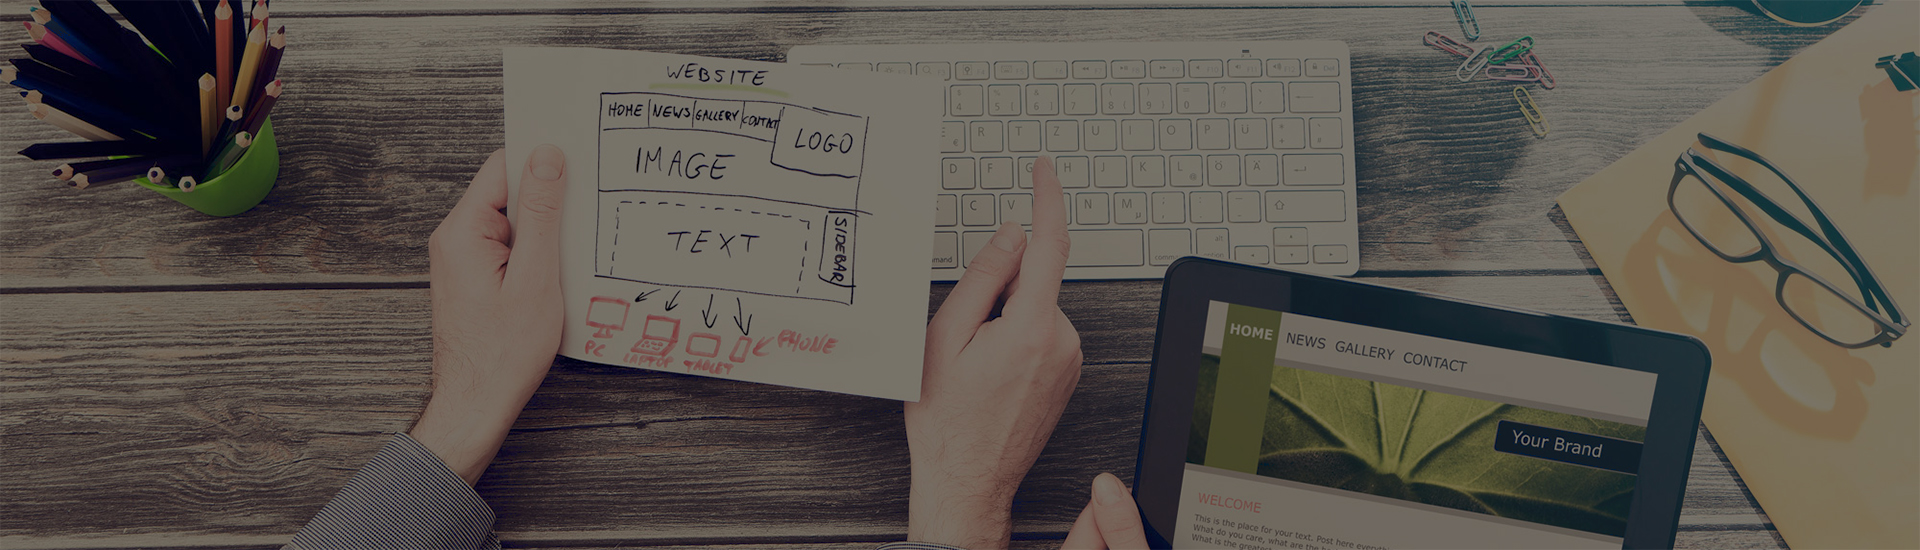 WEBSITE
HOME NEWS GALLERY CONTACT
LOGO
IMAGE
TEXT
SIDEBAR
PHONE
PC LAPTOP TABLET
E R T Z U I O P Ü
D F G H J K L Ö Ä
C V N M
HOME NEWS GALLERY CONTACT
Your Brand
WELCOME
This is the place for your text. Post here
What do you care, what are the
What is the